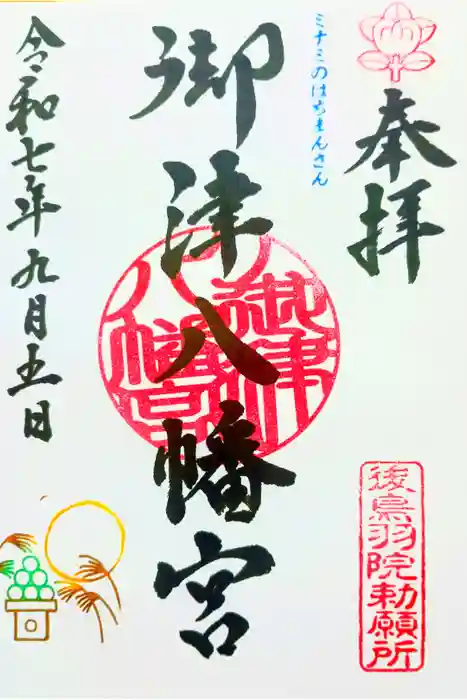 奉拝
ミナミのはちまんさん
御津八幡宮
御津八幡宮
令和七年九月五日
後鳥羽院勅願所